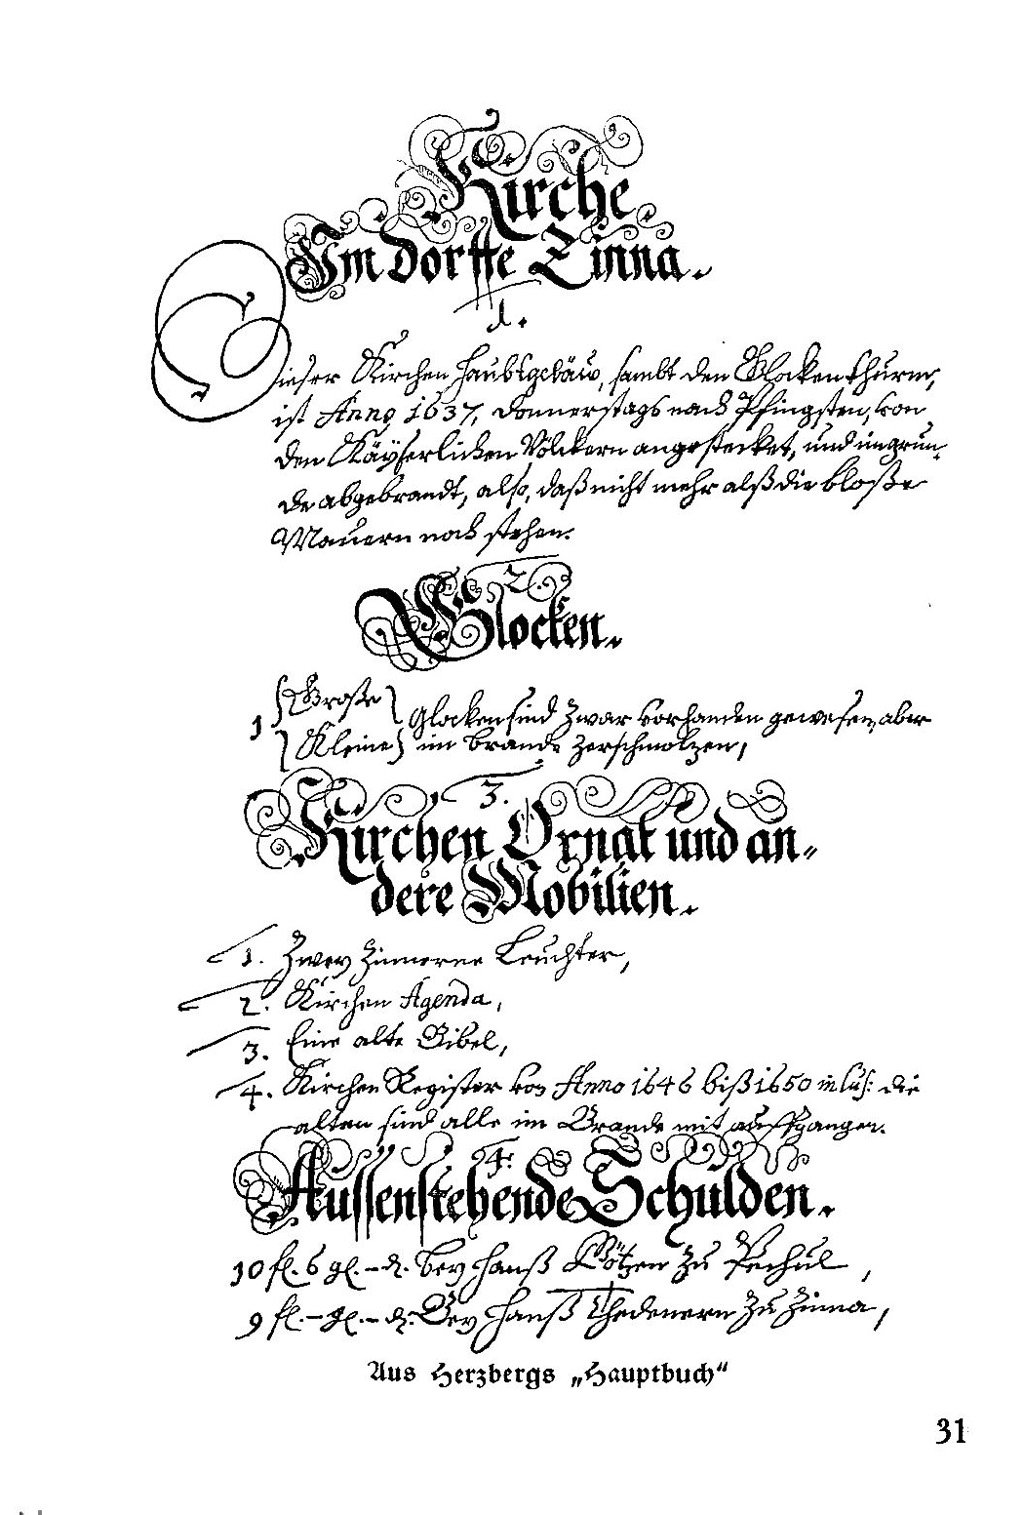 Kirche
Im Dorffe Zinna.
1.
Dieser Kirchen Haubtgebäw, sambt den Glockenthurm,
ist Anno 1637, Donnerstags nach Pfingsten, von
den Käyserlichen Völckern angestecket, und im grun-
de abgebrandt, also, daß nicht mehr alß die bloße
Mauern noch stehen.
2.
Glocken.
1 {Große} Glocken sind zwar vorhanden gewesen, aber
{Kleine} im brande zerschmoltzen,
3.
Kirchen Ornat und an-
dere Mobilien.
1. Zwey Zinnerne Leuchter,
2. Kirchen Agenda,
3. Eine alte Bibel,
4. Kirchen Register von Anno 1646 biß 1650 inclus: die
alten sind alle im Brande mit auffgangen.
4.
Aussenstehende Schulden.
10 fl. 6 gl. – d. bey Hanß Götzen zu Pechul,
9 fl. – gl. – d. Bey Hanß Thedenern zu Zinna,
Aus Herzbergs „Hauptbuch“
31